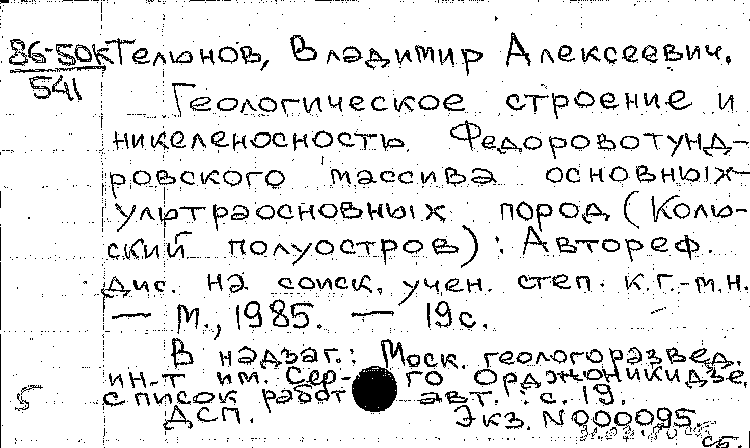 86-50к Тельнов, Владимир Алексеевич.
541
Геологическое строение и
никеленосность Федоровотунд-
ровского массива основных-
ультраосновных пород (Коль-
ский полуостров) : Автореф.
дис. на соиск. учен. степ. к.г.-м.н.
— М., 1985. — 19 с.
В надзаг.: Моск. геологоразвед.
ин-т им. Сер- го Орджоникидзе.
список работ авт.: с. 19.
5
ДСП. Экз. N 000095
сб.